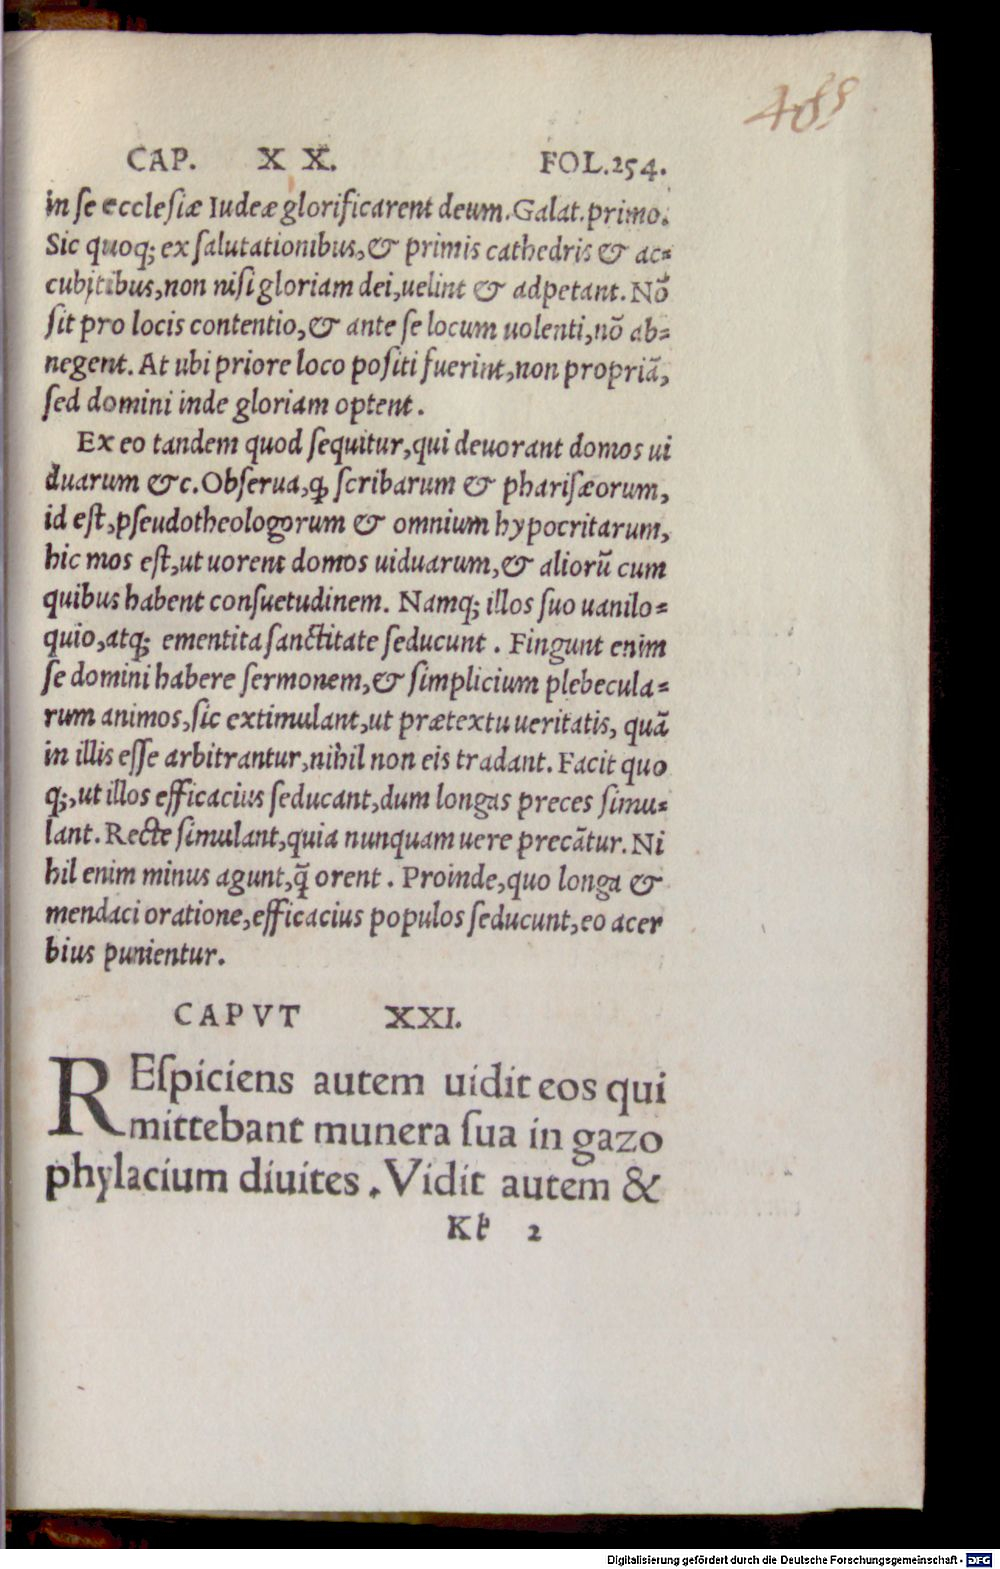 488
CAP. XX. FOL.254.
in ſe eccleſiæ Iudeæ glorificarent deum. Galat. primo.
Sic quoq; ex ſalutationibus, & primis cathedris & ac-
cubitibus, non niſi gloriam dei, uelint & adpetant. Nō
ſit pro locis contentio, & ante ſe locum uolenti, nō ab-
negent. At ubi priore loco poſiti fuerint, non propriā,
ſed domini inde gloriam optent.
Ex eo tandem quod ſequitur, qui deuorant domos ui
duarum &c. Obſerua, ꝙ ſcribarum & phariſæorum,
id eſt, pſeudotheologorum & omnium hypocritarum,
hic mos eſt, ut uorent domos uiduarum, & aliorū cum
quibus habent conſuetudinem. Namq; illos ſuo uanilo-
quio, atq; ementita ſanctitate ſeducunt. Fingunt enim
ſe domini habere ſermonem, & ſimplicium plebecula-
rum animos, ſic extimulant, ut prætextu ueritatis, quā
in illis eſſe arbitrantur, nihil non eis tradant. Facit quo
q;, ut illos efficacius ſeducant, dum longas preces ſimu-
lant. Recte ſimulant, quia nunquam uere precātur. Ni
hil enim minus agunt, q̄ orent. Proinde, quo longa &
mendaci oratione, efficacius populos ſeducunt, eo acer
bius punientur.
CAPVT XXI.
REſpiciens autem uidit eos qui
mittebant munera ſua in gazo
phylacium diuites. Vidit autem &
Kk 2
Digitalisierung gefördert durch die Deutsche Forschungsgemeinschaft - DFG